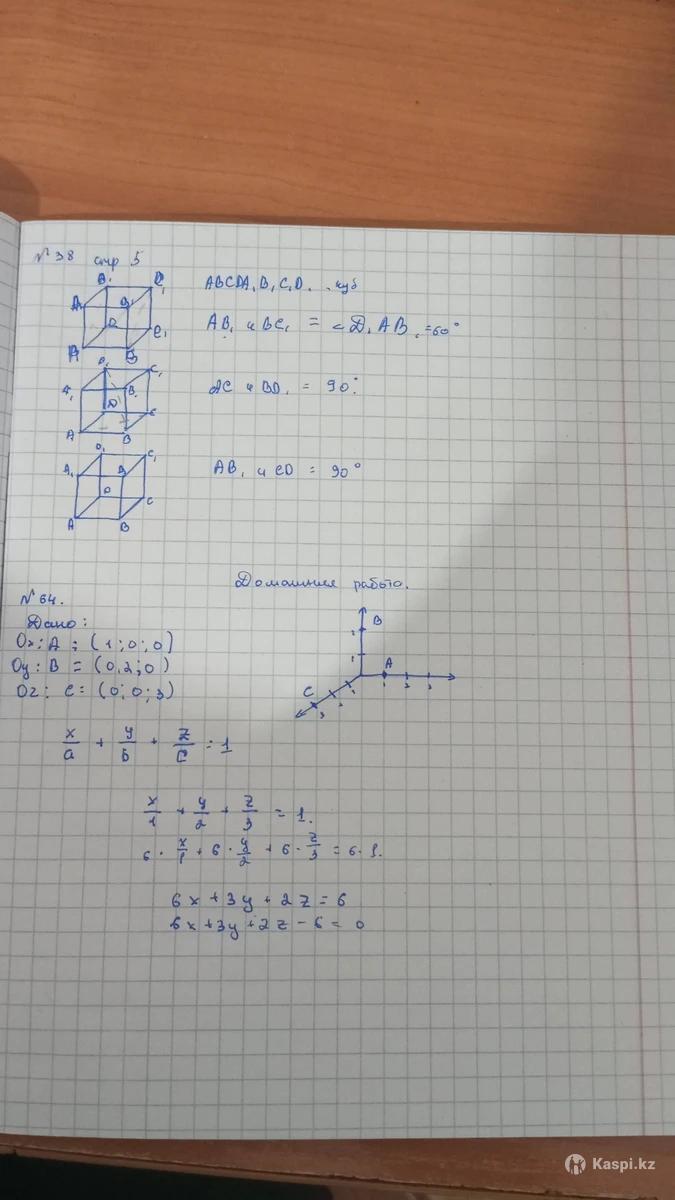 № 38 стр 5
ABCDA₁B₁C₁D₁ куб
AB₁ и BC₁ = <D₁AB₁ = 60°
AC и BD₁ = 90°
AB₁ и CD = 90°
Домашняя работа.
№ 64.
Дано:
Ox: A = (1; 0; 0)
Oy: B = (0, 2; 0)
Oz: C = (0; 0; 3)
B
A
C
1 2 3
x/a + y/b + z/c = 1
x/1 + y/2 + z/3 = 1.
6 · x/1 + 6 · y/2 + 6 · z/3 = 6 · 1.
6x + 3y + 2z = 6
6x + 3y + 2z - 6 = 0
Kaspi.kz